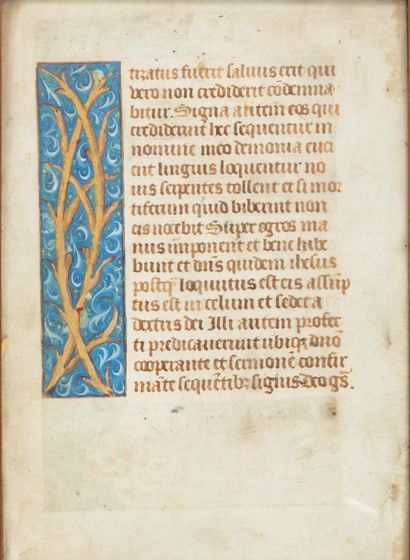 tizatus fuerit saluus erit qui
vero non crediderit cōdemna
bitur. Signa autem eos qui
crediderint hec sequentur in
nomine meo demonia eici
ent linguis loquentur no
uis serpentes tollent et si mor
tiferum quid biberint non
eis nocebit Super egros ma
nus imponent et bene habe
bunt et dn̄s quidem ihesus
postq̄ loquutus est eis assūp
tus est in celum et sedet a
dextris dei Illi autem profec
ti predicauerunt ubiqꝫ dn̄o
cooperante et sermonē confir
māte sequētibꝫ signis Deo gr̄s.